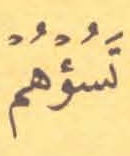 تَسُؤْهُمْ